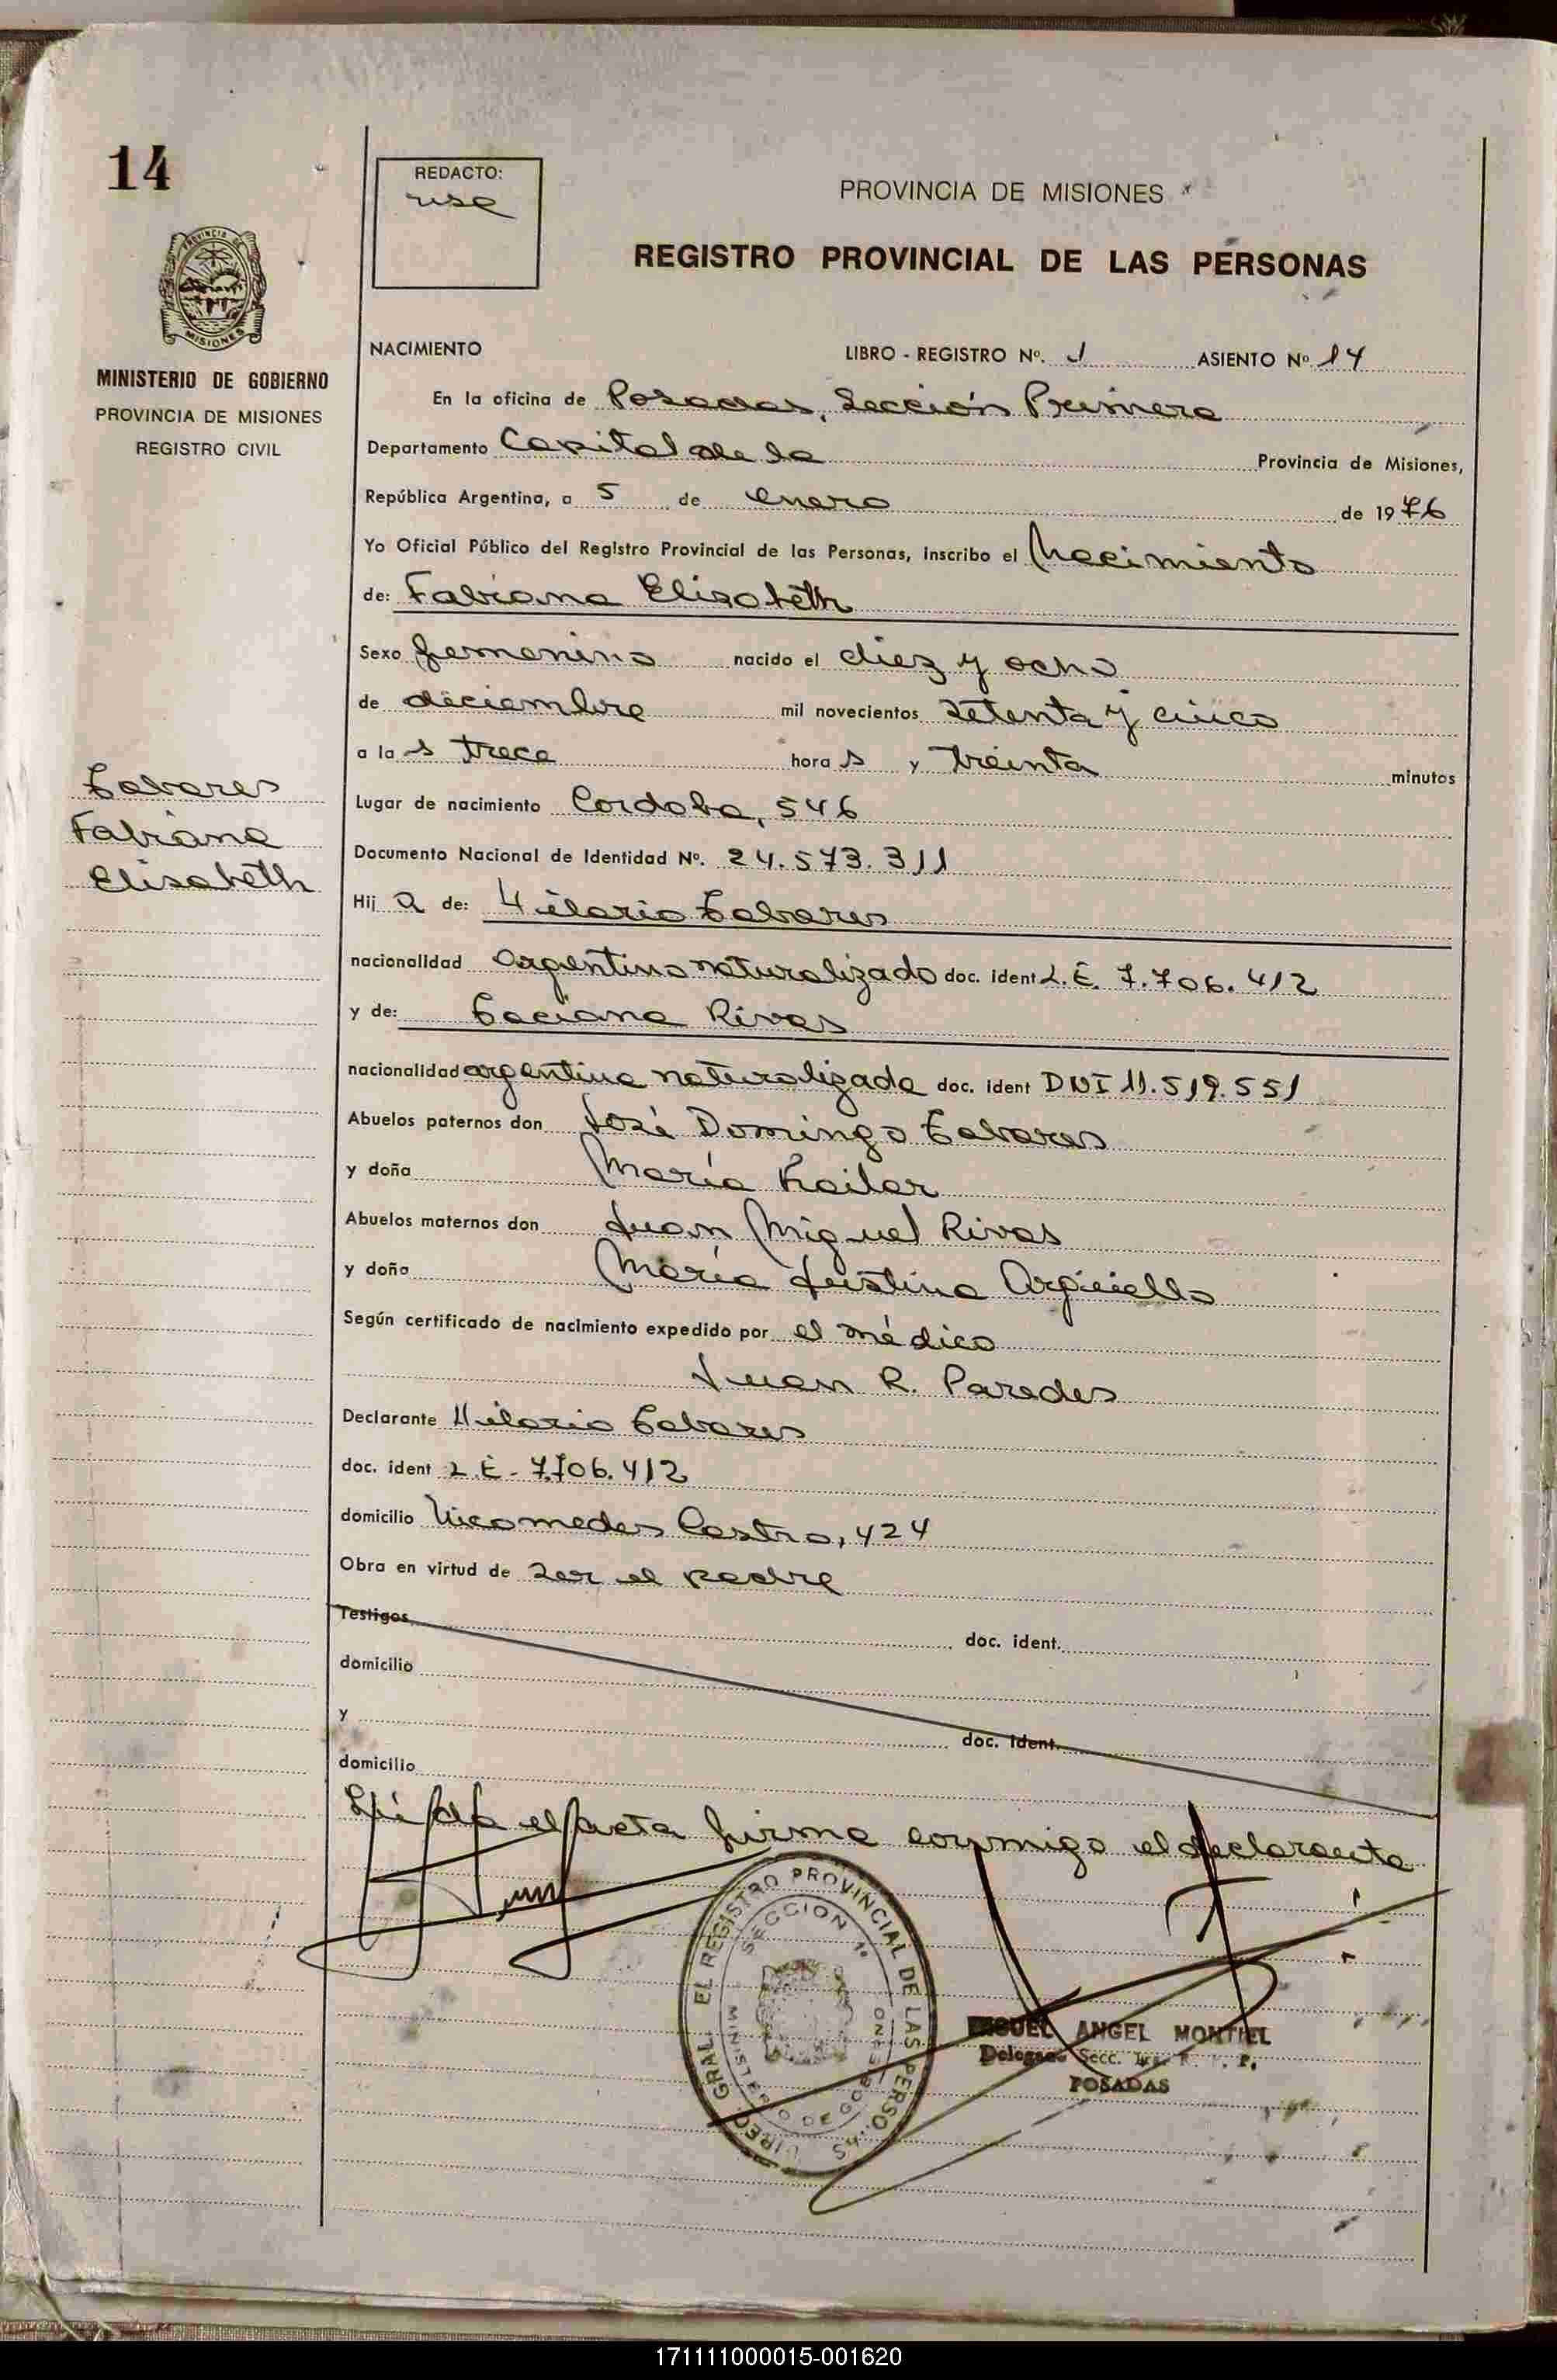 14
REDACTO:
PROVINCIA DE MISIONES
REGISTRO PROVINCIAL DE LAS PERSONAS
PROVINCIA DE MISIONES
MINISTERIO DE GOBIERNO
PROVINCIA DE MISIONES
REGISTRO CIVIL
NACIMIENTO LIBRO - REGISTRO Nº. 1 ASIENTO Nº 14
En la oficina de Posadas, Sección Primera
Departamento Capital de la Provincia de Misiones,
República Argentina, a 5 de enero de 1976
Yo Oficial Público del Registro Provincial de las Personas, inscribo el Nacimiento
de: Fabiana Elisabeth
Sexo femenino nacido el diez y ocho
de diciembre mil novecientos setenta y cinco
a las trece horas y treinta minutos
Tabares
Fabiana
Elisabeth
Lugar de nacimiento Cordoba, 546
Documento Nacional de Identidad Nº. 24.573.311
Hija de: Hilario Tabares
nacionalidad argentino naturalizado doc. ident L.E. 7.706.412
y de: Taciana Rivas
nacionalidad argentina naturalizada doc. ident DNI 11.519.551
Abuelos paternos don José Domingo Tabares
y doña María
Abuelos maternos don Juan Miguel Rivas
y doña María Justina
Según certificado de nacimiento expedido por el médico
Juan R. Paredes
Declarante Hilario Tabares
doc. ident L.E. 7.706.412
domicilio Nicomedes Castro, 424
Obra en virtud de ser el padre
Testigos doc. ident.
domicilio
y doc. ident.
domicilio
Leída el acta firma conmigo el declarante
DIREC. GRAL. EL REGISTRO PROVINCIAL DE LAS PERSONAS
SECCION 1ª
MINISTERIO DE GOBIERNO
MIGUEL ANGEL MONTIEL
Delegado Secc. 1ra. R. P. P.
POSADAS
171111000015-001620